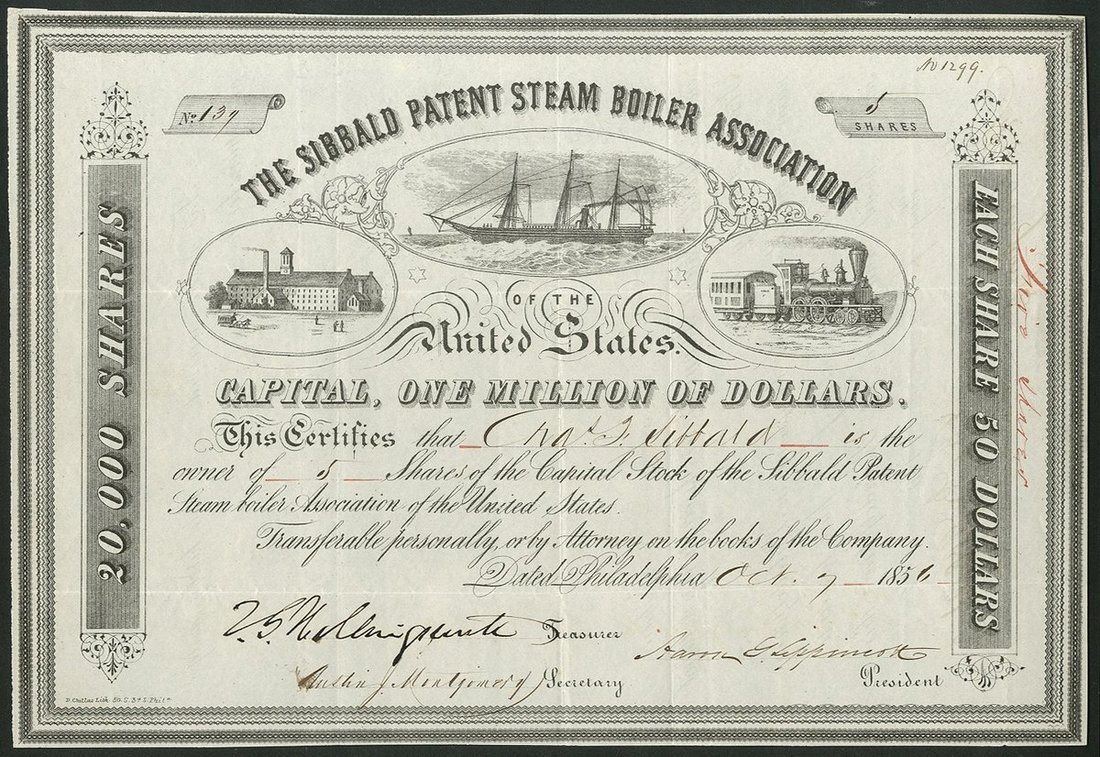 No 1299.
No. 137
5
SHARES
THE SIBBALD PATENT STEAM BOILER ASSOCIATION
OF THE
United States.
CAPITAL, ONE MILLION OF DOLLARS.
This Certifies that Chas. F. Sibbald is the
owner of 5 Shares of the Capital Stock of the Sibbald Patent
Steam boiler Association of the United States.
Transferable personally, or by Attorney on the books of the Company.
Dated Philadelphia Oct. 7 1856
Treasurer
Aaron S. Lippincott
President
Austin Montgomery Secretary
20,000 SHARES
EACH SHARE 50 DOLLARS
Five Shares
Lith. 50 S. 3d S. Phila